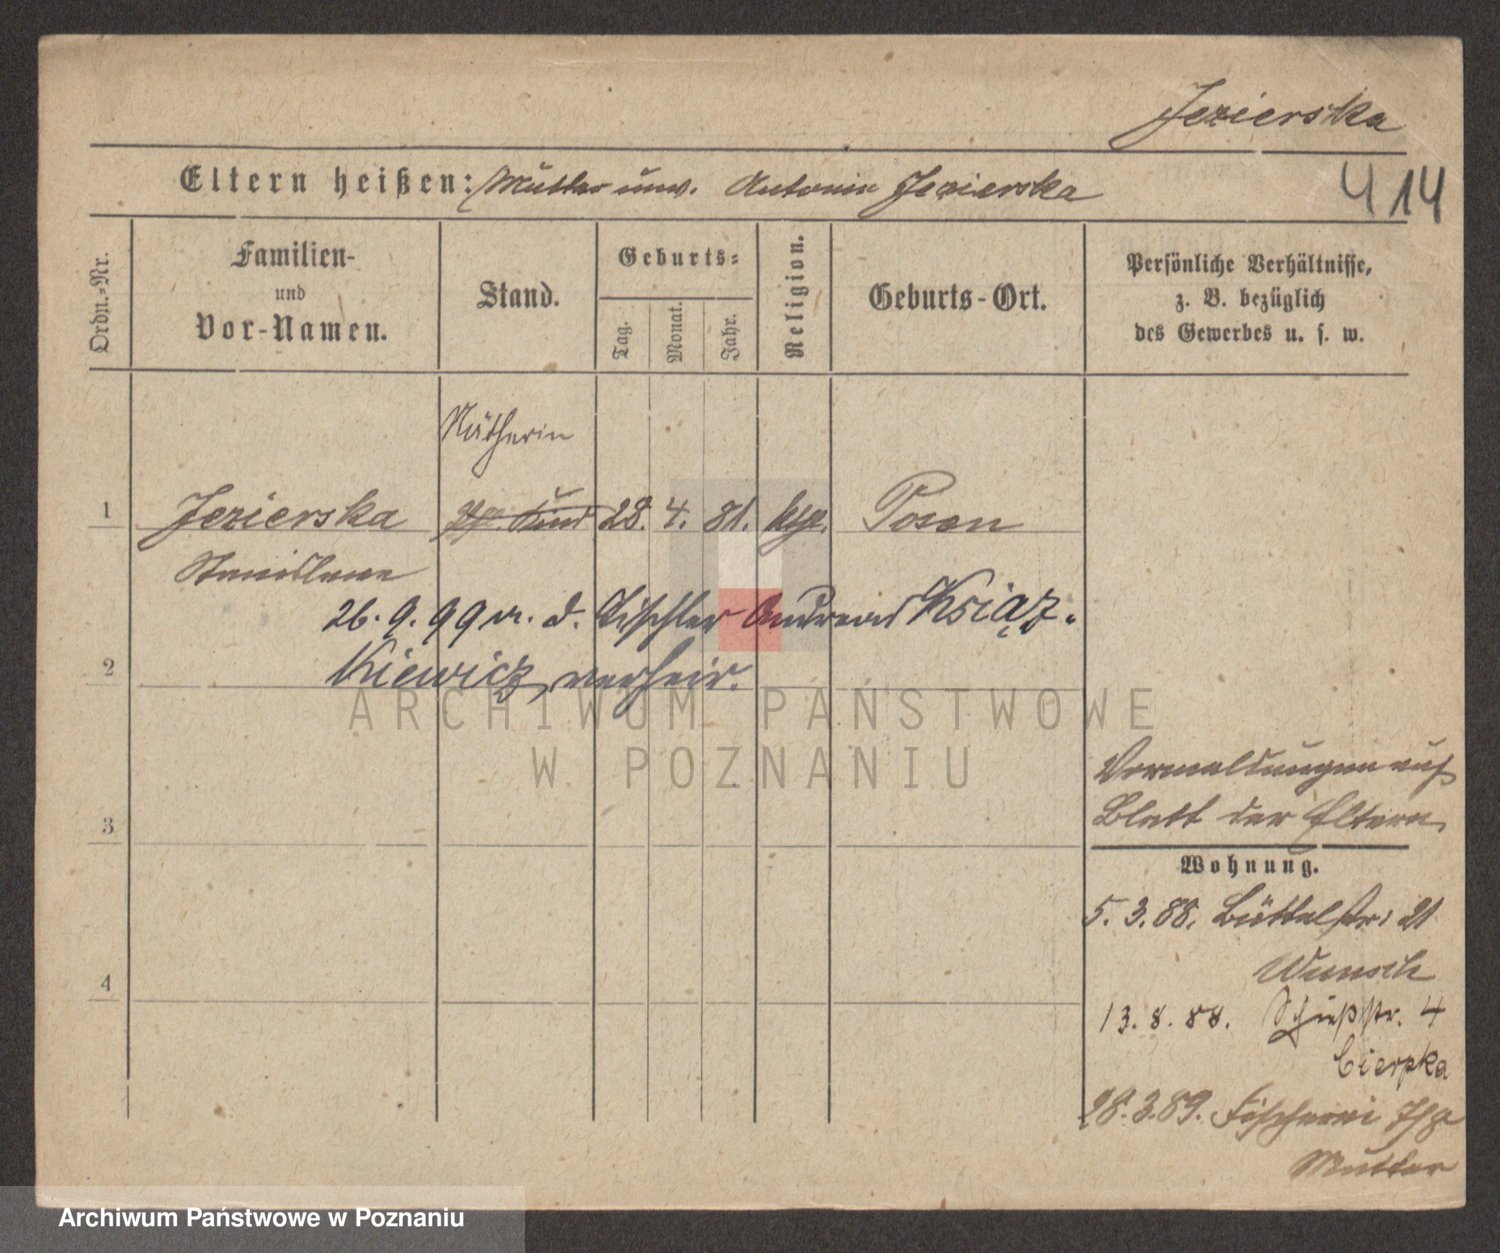 Jezierska
Eltern heißen: Mutter unv. Antonie Jezierska
414
Ordn.-Nr.
Familien-
und
Vor-Namen.
Stand.
Geburts-
Tag.
Monat.
Jahr.
Religion.
Geburts-Ort.
Persönliche Verhältnisse,
z. B. bezüglich
des Gewerbes u. s. w.
Nätherin
1 Jezierska Kind 28. 4. 81. Posen
Stanislawa
26. 9. 99 m. d. Tischler Andreas Książ-
kiewicz verheir.
2
ARCHIWUM PAŃSTWOWE
W POZNANIU
Vormeldungen auf
Blatt der Eltern
3
Wohnung.
5. 3. 88. Büttelstr. 21
Wunsch
4
13. 8. 88. Schießstr. 4
Cierpka
28. 3. 89. Fischerei
Mutter
Archiwum Państwowe w Poznaniu